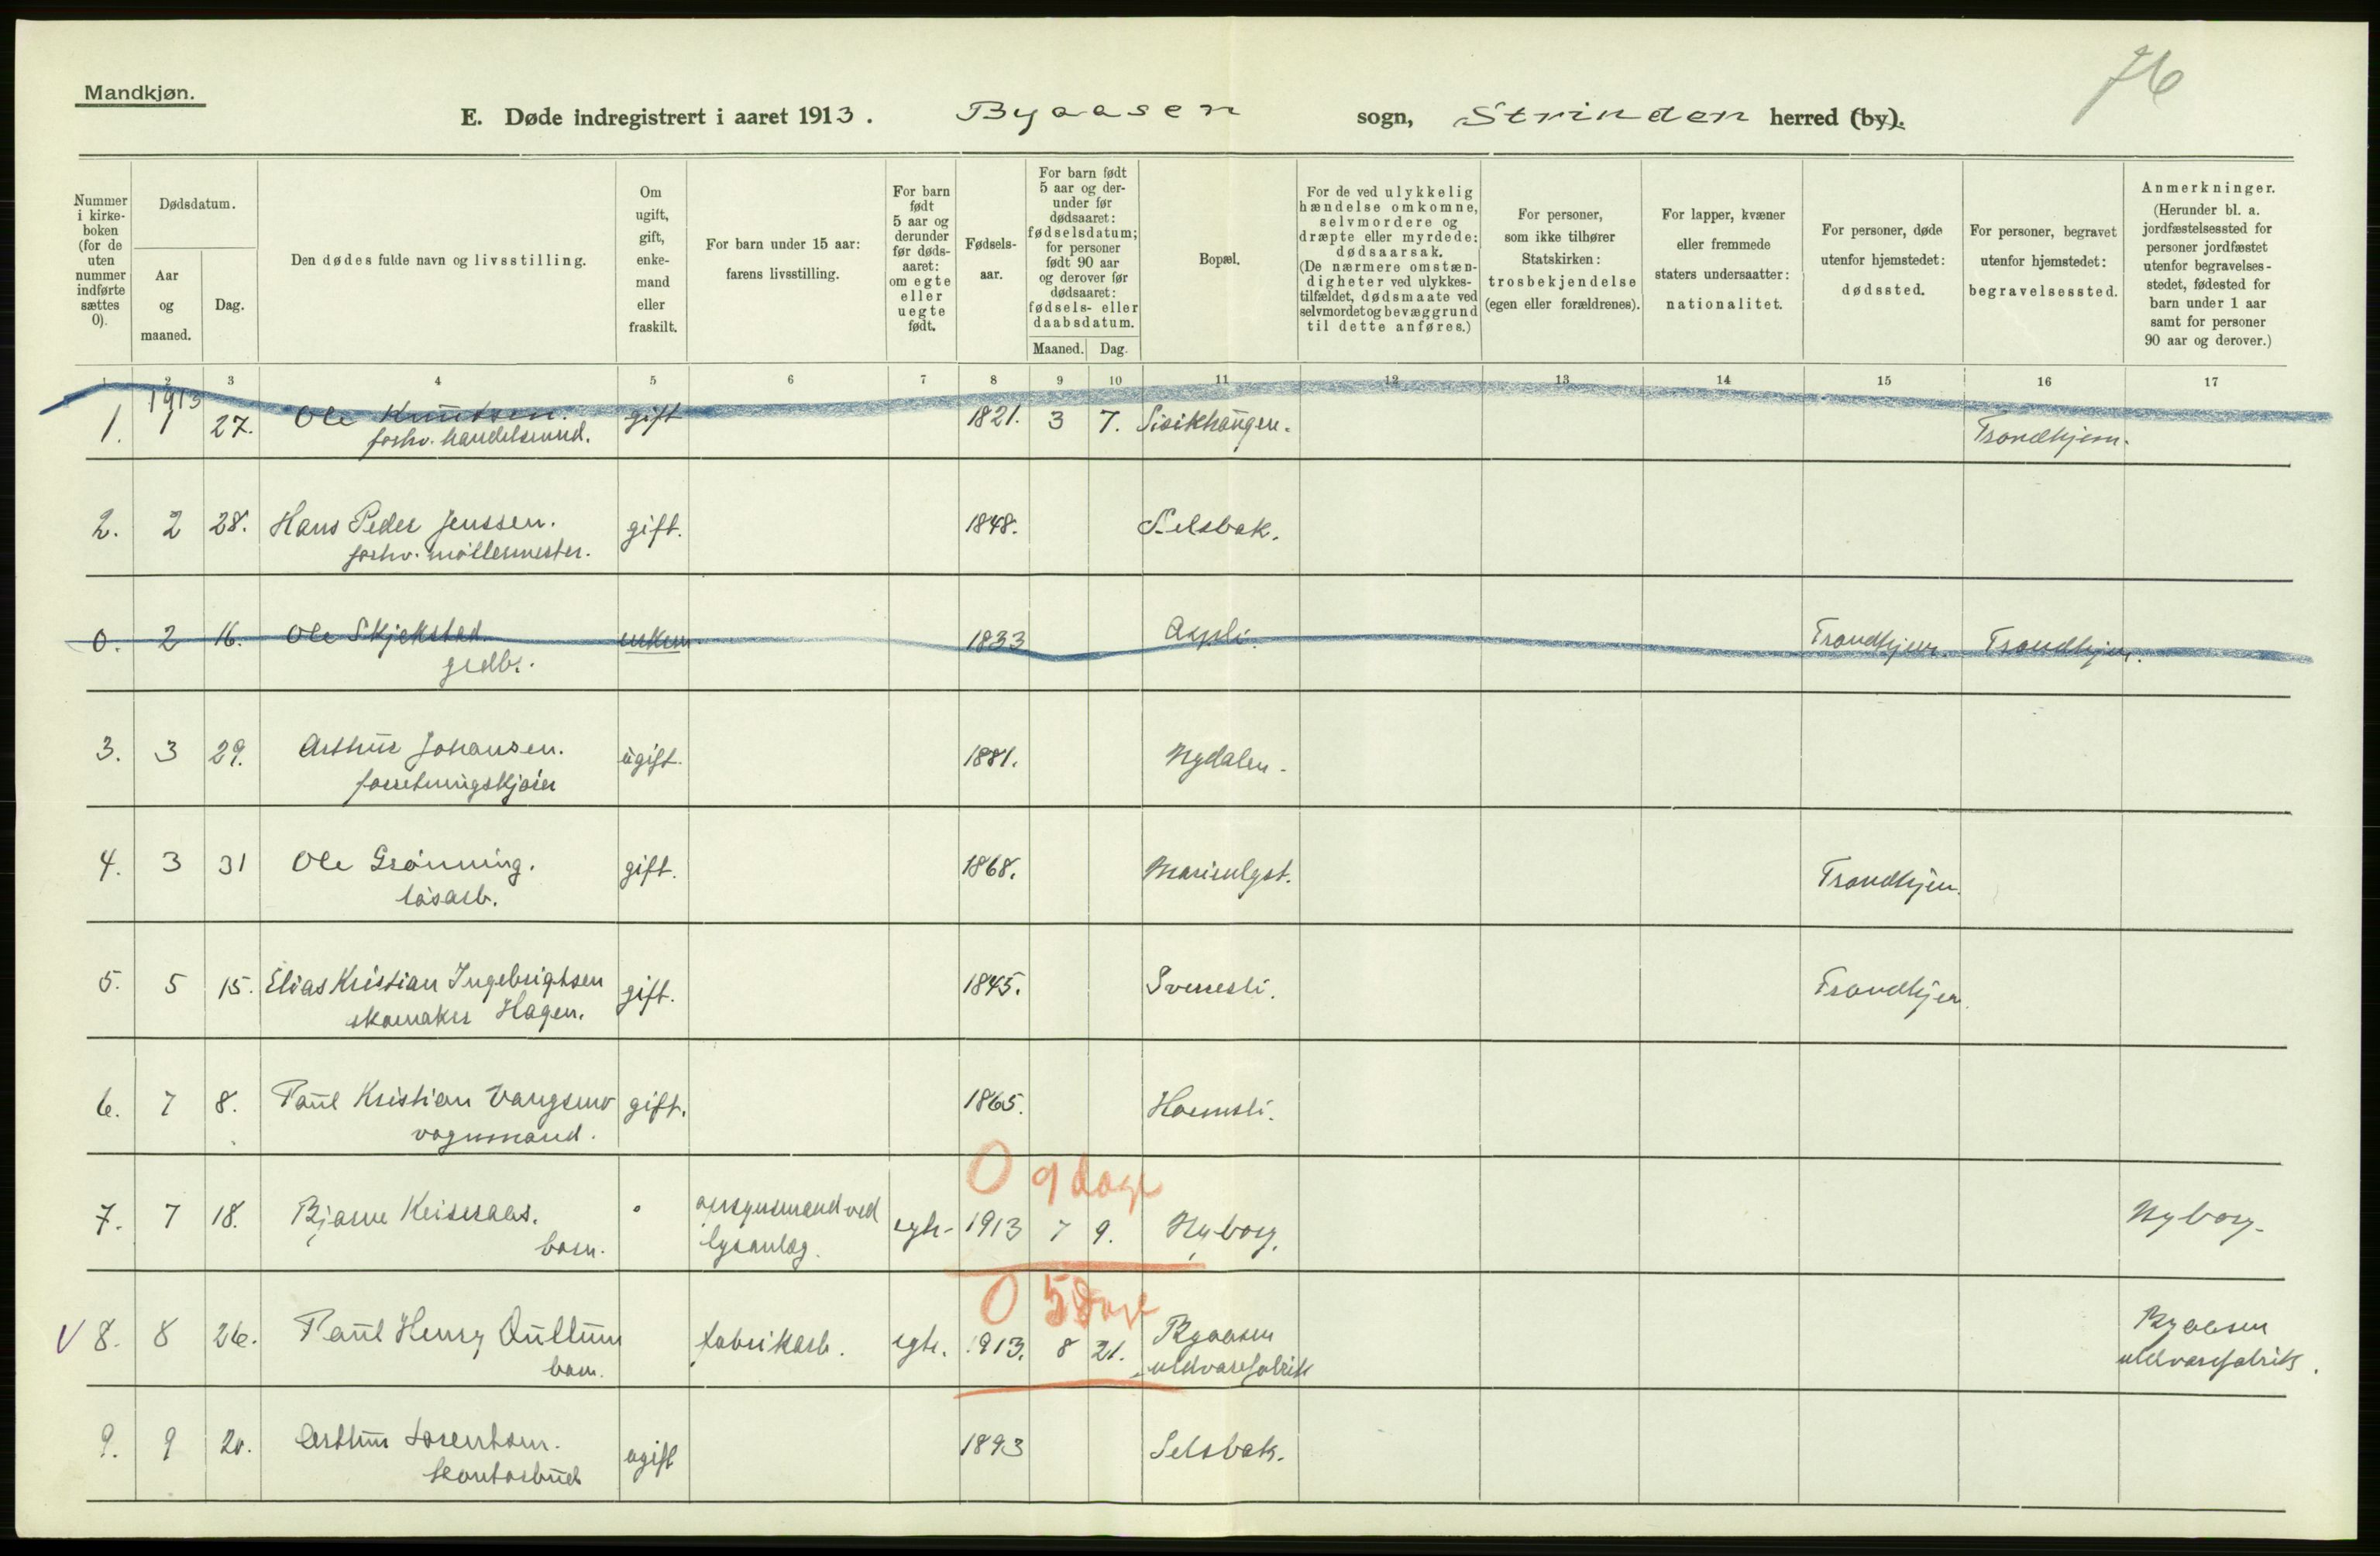 Mandkjøn.
76
E. Døde indregistrert i aaret 1913. Byaasen sogn, Strinden herred (by).
Nummer i kirke- boken (for de uten nummer indførte sættes 0).
Dødsdatum.
Aar og maaned.
Dag.
Den dødes fulde navn og livsstilling.
Om ugift, gift, enke- mand eller fraskilt.
For barn under 15 aar: farens livsstilling.
For barn født 5 aar og derunder før døds- aaret: om egte eller uegte født.
Fødsels- aar.
For barn født 5 aar og der- under før dødsaaret: fødselsdatum; for personer født 90 aar og derover før dødsaaret: fødsels- eller daabsdatum.
Maaned. Dag.
Bopæl.
For de ved ulykkelig hændelse omkomne, selvmordere og dræpte eller myrdede: dødsaarsak. (De nærmere omstæn- digheter ved ulykkes- tilfældet, dødsmaate ved selvmordet og bevæggrund til dette anføres.)
For personer, som ikke tilhører Statskirken: trosbekjendelse (egen eller forældrenes).
For lapper, kvæner eller fremmede staters undersaatter: nationalitet.
For personer, døde utenfor hjemstedet: dødssted.
For personer, begravet utenfor hjemstedet: begravelsessted.
Anmerkninger. (Herunder bl. a. jordfæstelsessted for personer jordfæstet utenfor begravelses- stedet, fødested for barn under 1 aar samt for personer 90 aar og derover.)
1 2 3 4 5 6 7 8 9 10 11 12 13 14 15 16 17
1913
1. 1 27. Ole Knutsen. gift 1821. 3 7. Sisikhaugen. Trondhjem.
forhv. handelsmd.
2. 2 28. Hans Peder Jenssen. gift. 1848. Selsbak.
forhv. møllermester.
0. 2 16. Ole Skjekstad enkem. 1833 Trondhjem. Trondhjem.
grdbr.
3. 3 29. Arthur Johansen. ugift. 1881. Nydalen.
forretningskjører
4. 3 31 Ole Grønning. gift. 1868. Marienlyst. Trondhjem.
løsarb.
5. 5 15. Elias Kristian Ingebrigtsen gift. 1845. Sverresli. Trondhjem.
skomaker Hagen.
6. 7 8. Paul Kristian Vangsmo gift. 1865. Havnsli.
vognmand.
0 9 dage
7. 7 18. Bjarne Keiseraas. opsynsmand ved egte 1913 7 9. Nyborg. Nyborg.
barn. lysanlæg.
0 5 Dage
V 8. 8 26. Paul Henry Qullum fabrikarb. egte. 1913. 8 21. Byaasen Byaasen
barn. uldvarefabrik uldvarefabrik.
9. 9 20. Arthur Lorentsen. ugift 1893 Selsbak.
kontorbud